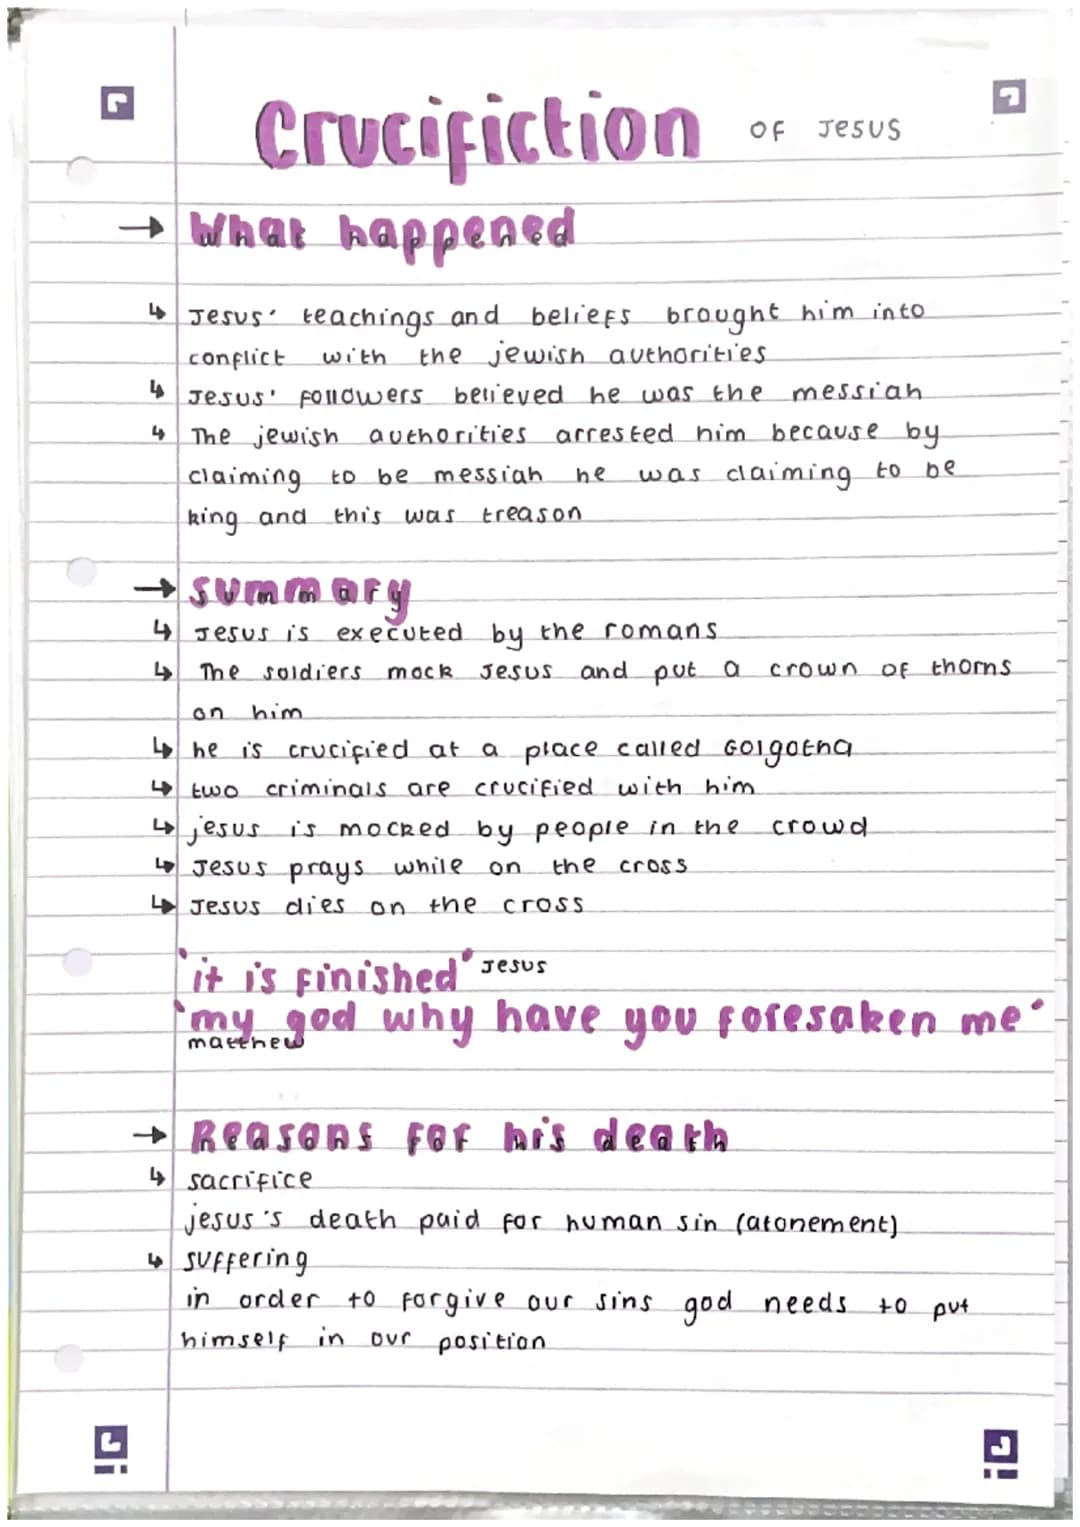 Crucifiction OF JESUS
What happened
Jesus' teachings and beliefs brought him into
conflict with the jewish authorities
Jesus' followers believed he was the messiah
The jewish authorities arrested him because by
claiming to be messiah he was claiming to be
king and this was treason
summary
Jesus is executed by the romans
The soldiers mock Jesus and put a crown of thorns
on him
he is crucified at a place called Golgotha
two criminals are crucified with him
jesus is mocked by people in the crowd
Jesus prays while on the cross
Jesus dies on the cross
'it is finished' Jesus
'my god why have you foresaken me'
matthew
Reasons for his death
sacrifice
jesus's death paid for human sin (atonement)
suffering
in order to forgive our sins god needs to put
himself in our position